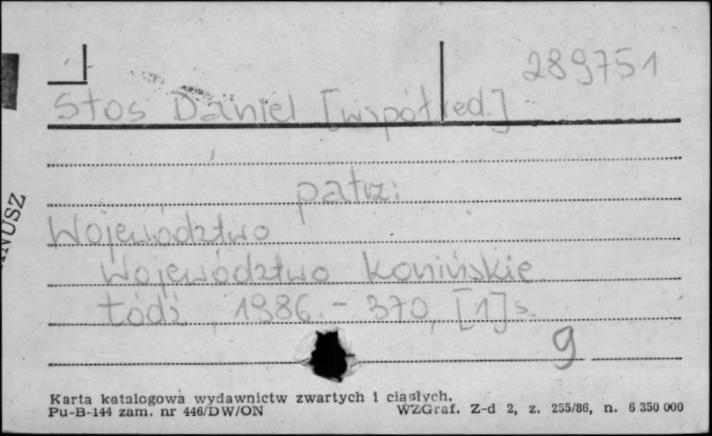 289751
Stos Daniel [współred.]
patrz:
Województwo
Województwo Konińskie
Łódź, 1986. - 370, [1] s.
9
NUSZ
Karta katalogowa wydawnictw zwartych i ciągłych.
Pu-B-144 zam. nr 446/DW/ON WZGraf. Z-d 2, z. 255/86, n. 6 350 000